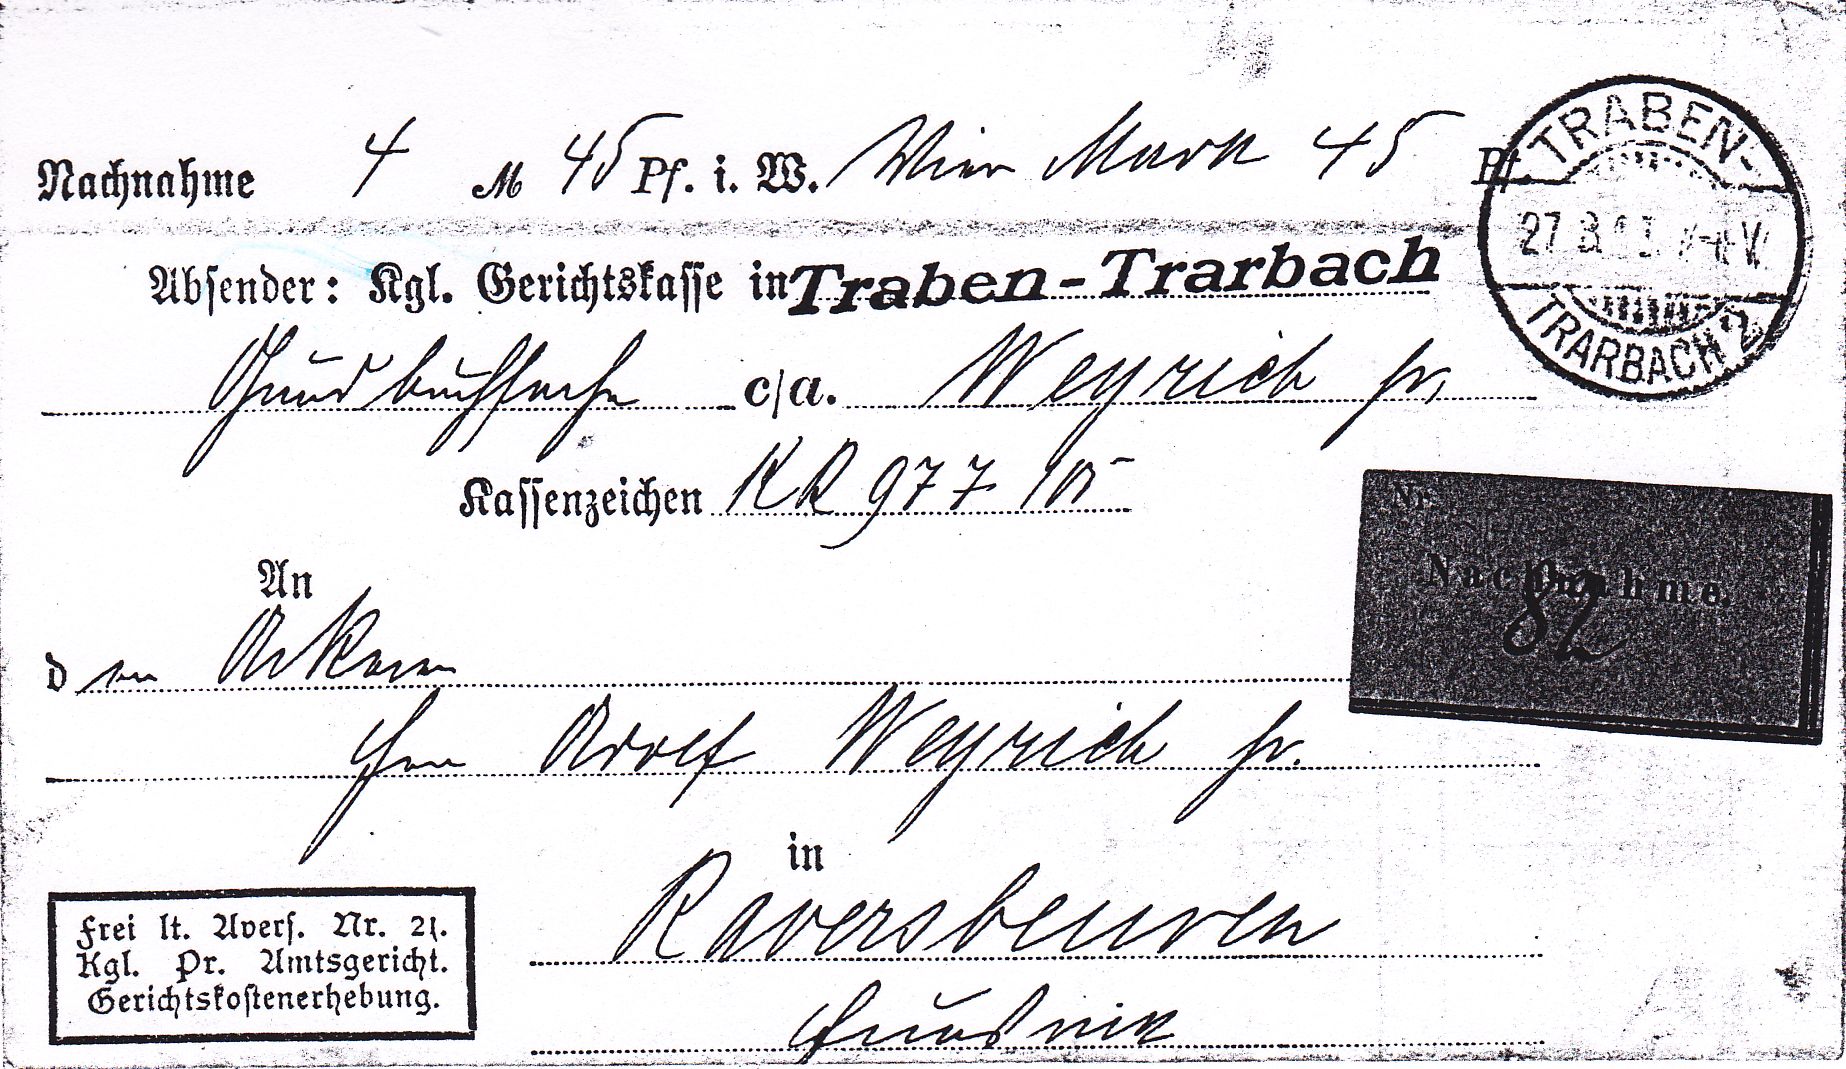 Nachnahme 4 M 45 Pf. i. W. Vier Mark 45 Pf.
TRABEN-
27.3.13. V.
TRARBACH 2
Absender: Kgl. Gerichtskasse in Traben-Trarbach
Grundbuchsache c/a. Weyrich sr.
Kassenzeichen KR 977
Nr.
Nachnahme.
82
An
den Ackerer
Herrn Adolf Weyrich sr.
in
Raversbeuren
Hunsrück
Frei lt. Avers. Nr. 21.
Kgl. Pr. Amtsgericht.
Gerichtskostenerhebung.